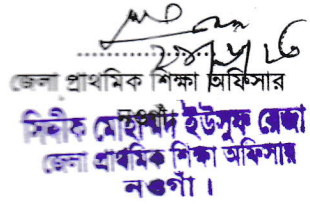 জেলা প্রাথমিক শিক্ষা অফিসার
নওগাঁ।
মোহাম্মদ ইউসুফ রেজা
জেলা প্রাথমিক শিক্ষা অফিসার
নওগাঁ।